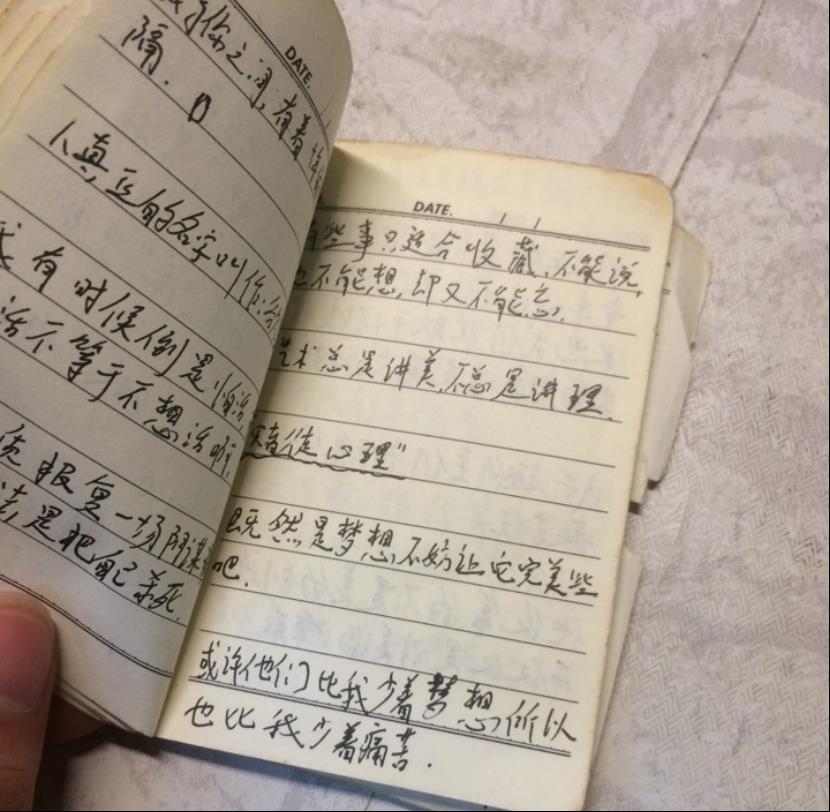 之间,有着
隔.
DATE.
人真正的名字叫作:
我有时候倒是怕活
活不等于不想活啊.
报复一场阴谋
法,是把自己杀死.
DATE.
有些事只适合收藏,不能说,
也不能想,却又不能忘.
艺术总是讲美,不总是讲理.
赌徒心理"
既然是梦想不妨让它完美些
吧.
或许他们比我少着梦想,所以
也比我少着痛苦.